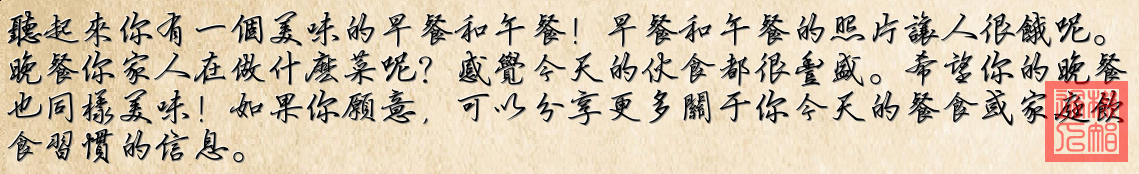 聽起來你有一個美味的早餐和午餐！早餐和午餐的照片讓人很餓呢。
晚餐你家人在做什麽菜呢？感覺今天的伙食都很豐盛。希望你的晚餐
也同樣美味！如果你願意，可以分享更多關于你今天的餐食或家庭飲
食習慣的信息。